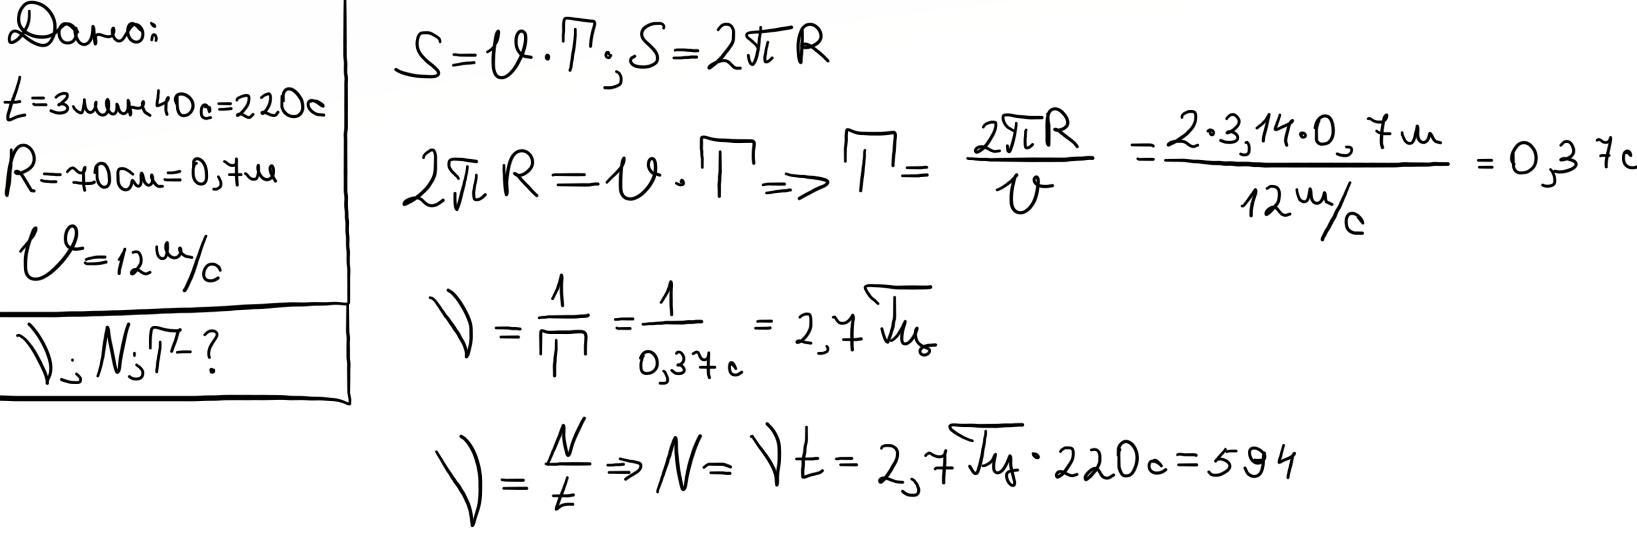 Дано:
t=3мин40с=220с
R=70см=0,7м
υ=12м/с
ν; N; T-?
S=υ·T; S=2πR
2πR=υ·T=>T= 2πR/υ = 2·3,14·0,7м/12м/с = 0,37с
ν = 1/T = 1/0,37с = 2,7Гц
ν = N/t => N= νt = 2,7Гц·220с=594